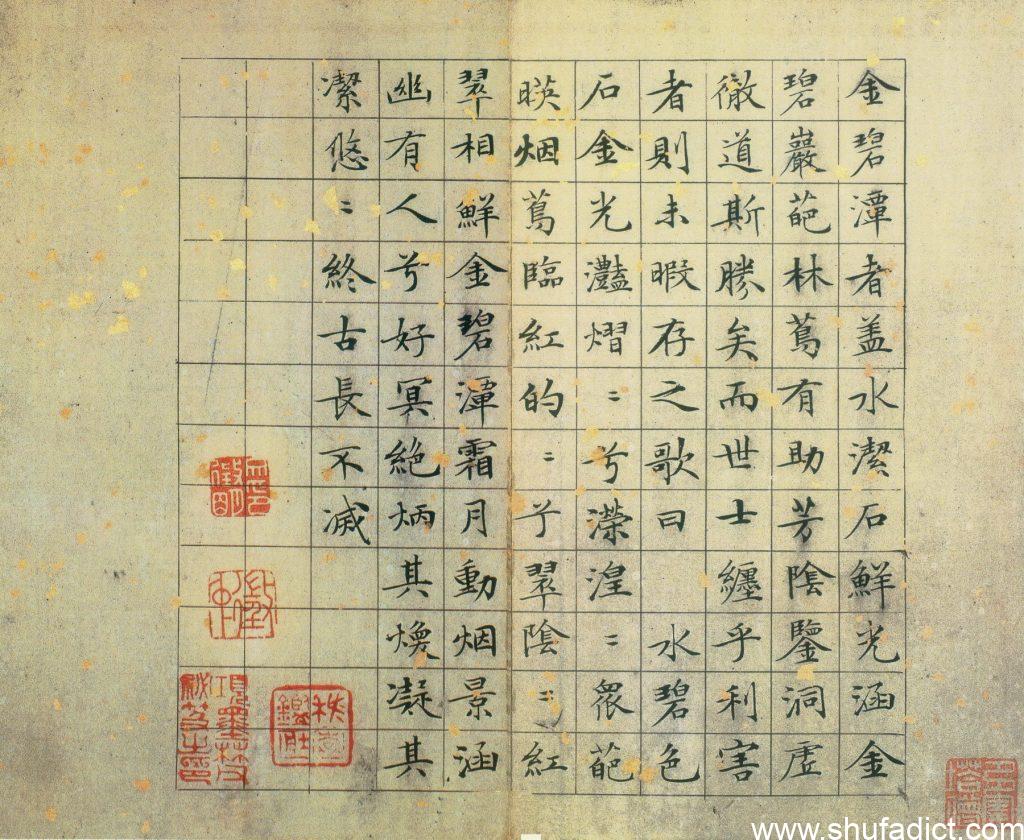 金碧潭者盖水潔石鮮光涵金
碧巖葩林蔦有助芳陰鑒洞虛
徹道斯勝矣而世士纏乎利害
者則未暇存之歌曰 水碧色
石金光灩熠〻兮濴湟〻衆葩
暎烟蔦臨紅的〻兮翠陰〻紅
翠相鮮金碧潭霜月動烟景涵
幽有人兮好冥絶炳其煥凝其
潔悠〻終古長不滅
www.shufadict.com